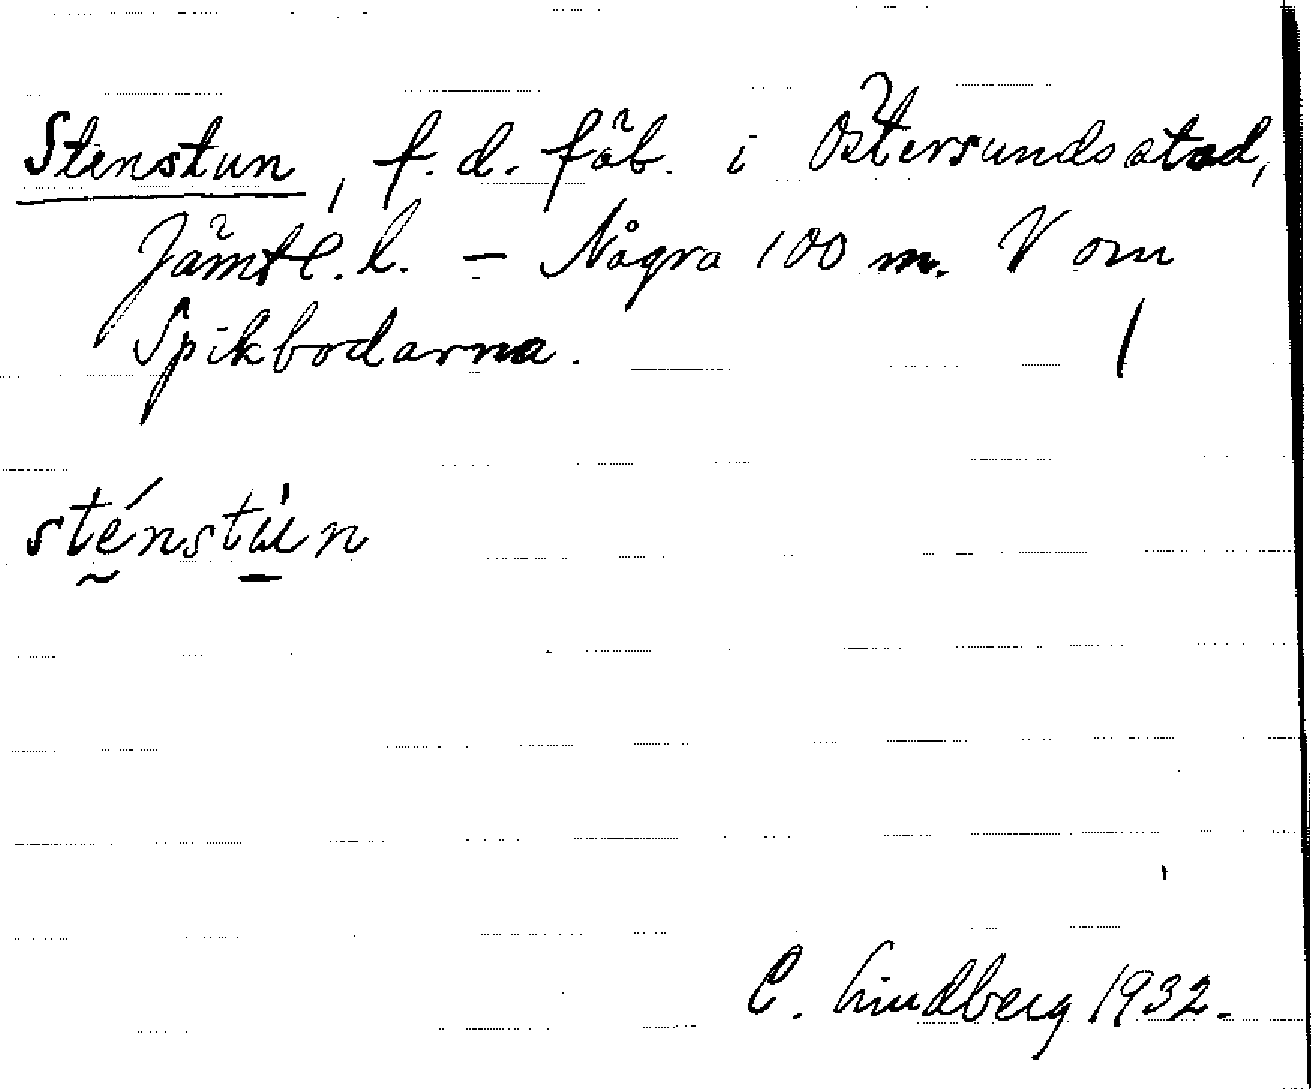 Stenstun, f. d. fäb. i Östersunds stad,
Jämtl. l. – Några 100 m. V om
Spikbodarna.
sténstùn
C. Lindberg 1932.